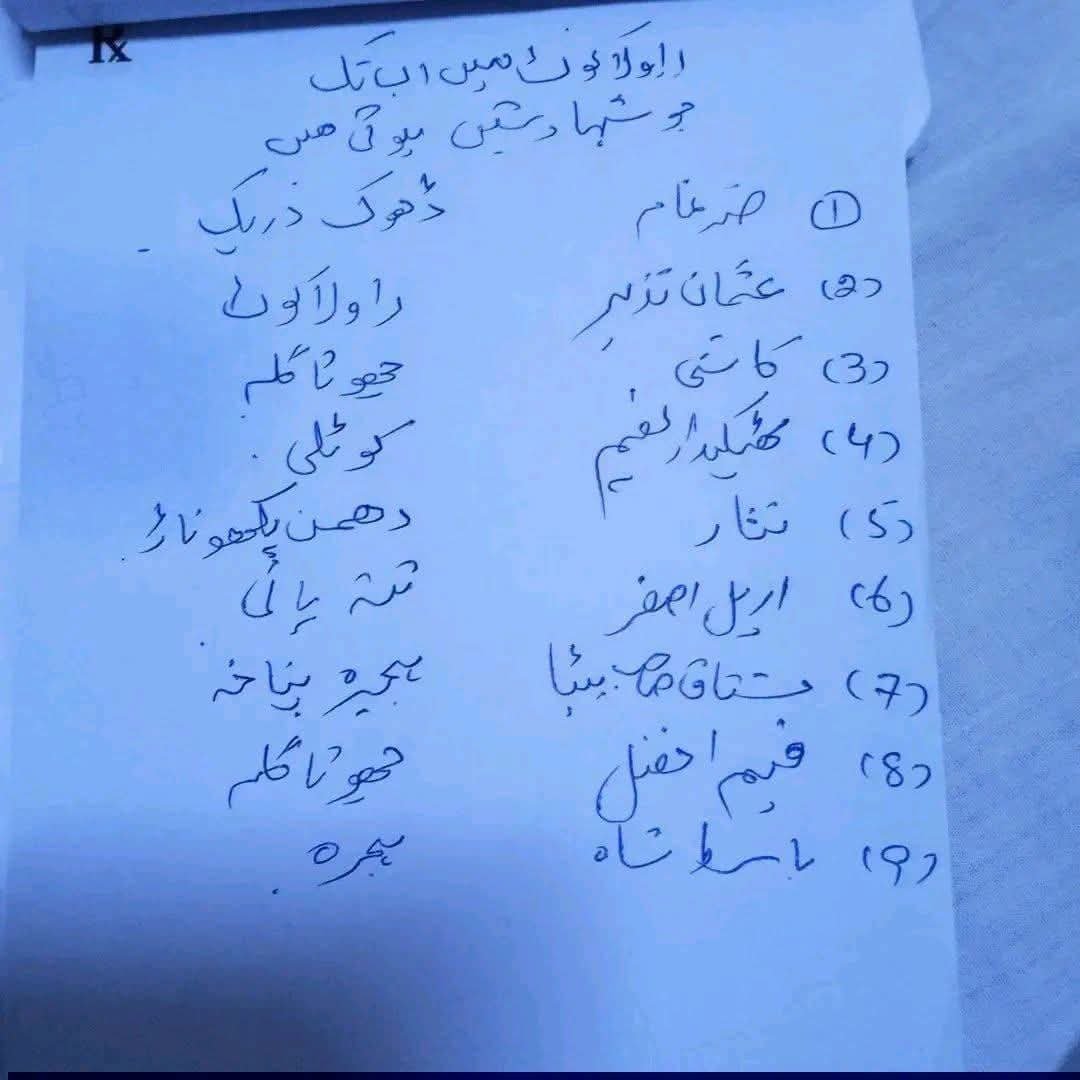 Rx
راولاکوٹ میں اب تک
جو شہادتیں ہوئی ہیں
① ضرغام ڈھوک دریک
(2) عثمان نذیر راولاکوٹ
(3) کاشی چھوٹا گلہ
(4) ٹھیکیدار نعیم کوٹلی
(5) نثار دھمن پکھوناڑ
(6) اصغر تتہ پانی
(7) مشتاق صاحب بیٹا ہجیرہ
(8) فہیم افضل چھوٹا گلہ
(9) باسط شاہ ہجرہ